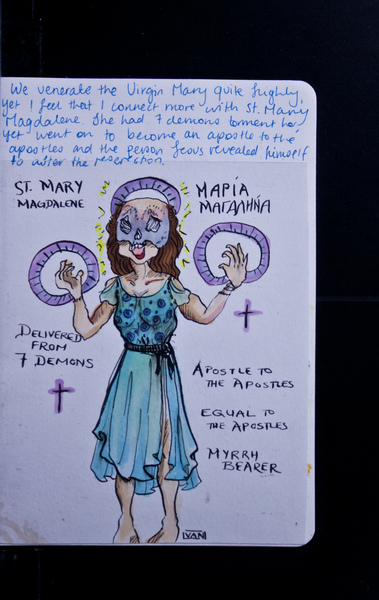 We venerate the Virgin Mary quite highly,
yet I feel that I connect more with St. Mary
Magdalene. She had 7 demons torment her
yet went on to become an apostle to the
apostles and the person Jesus revealed himself
to after the resurrection.
ST. MARY
MAGDALENE
ΜΑΡΊΑ
ΜΑΓΔΑΛΗΝΊΑ
DELIVERED
FROM
7 DEMONS
APOSTLE TO
THE APOSTLES
EQUAL TO
THE APOSTLES
MYRRH
BEARER
IVAN